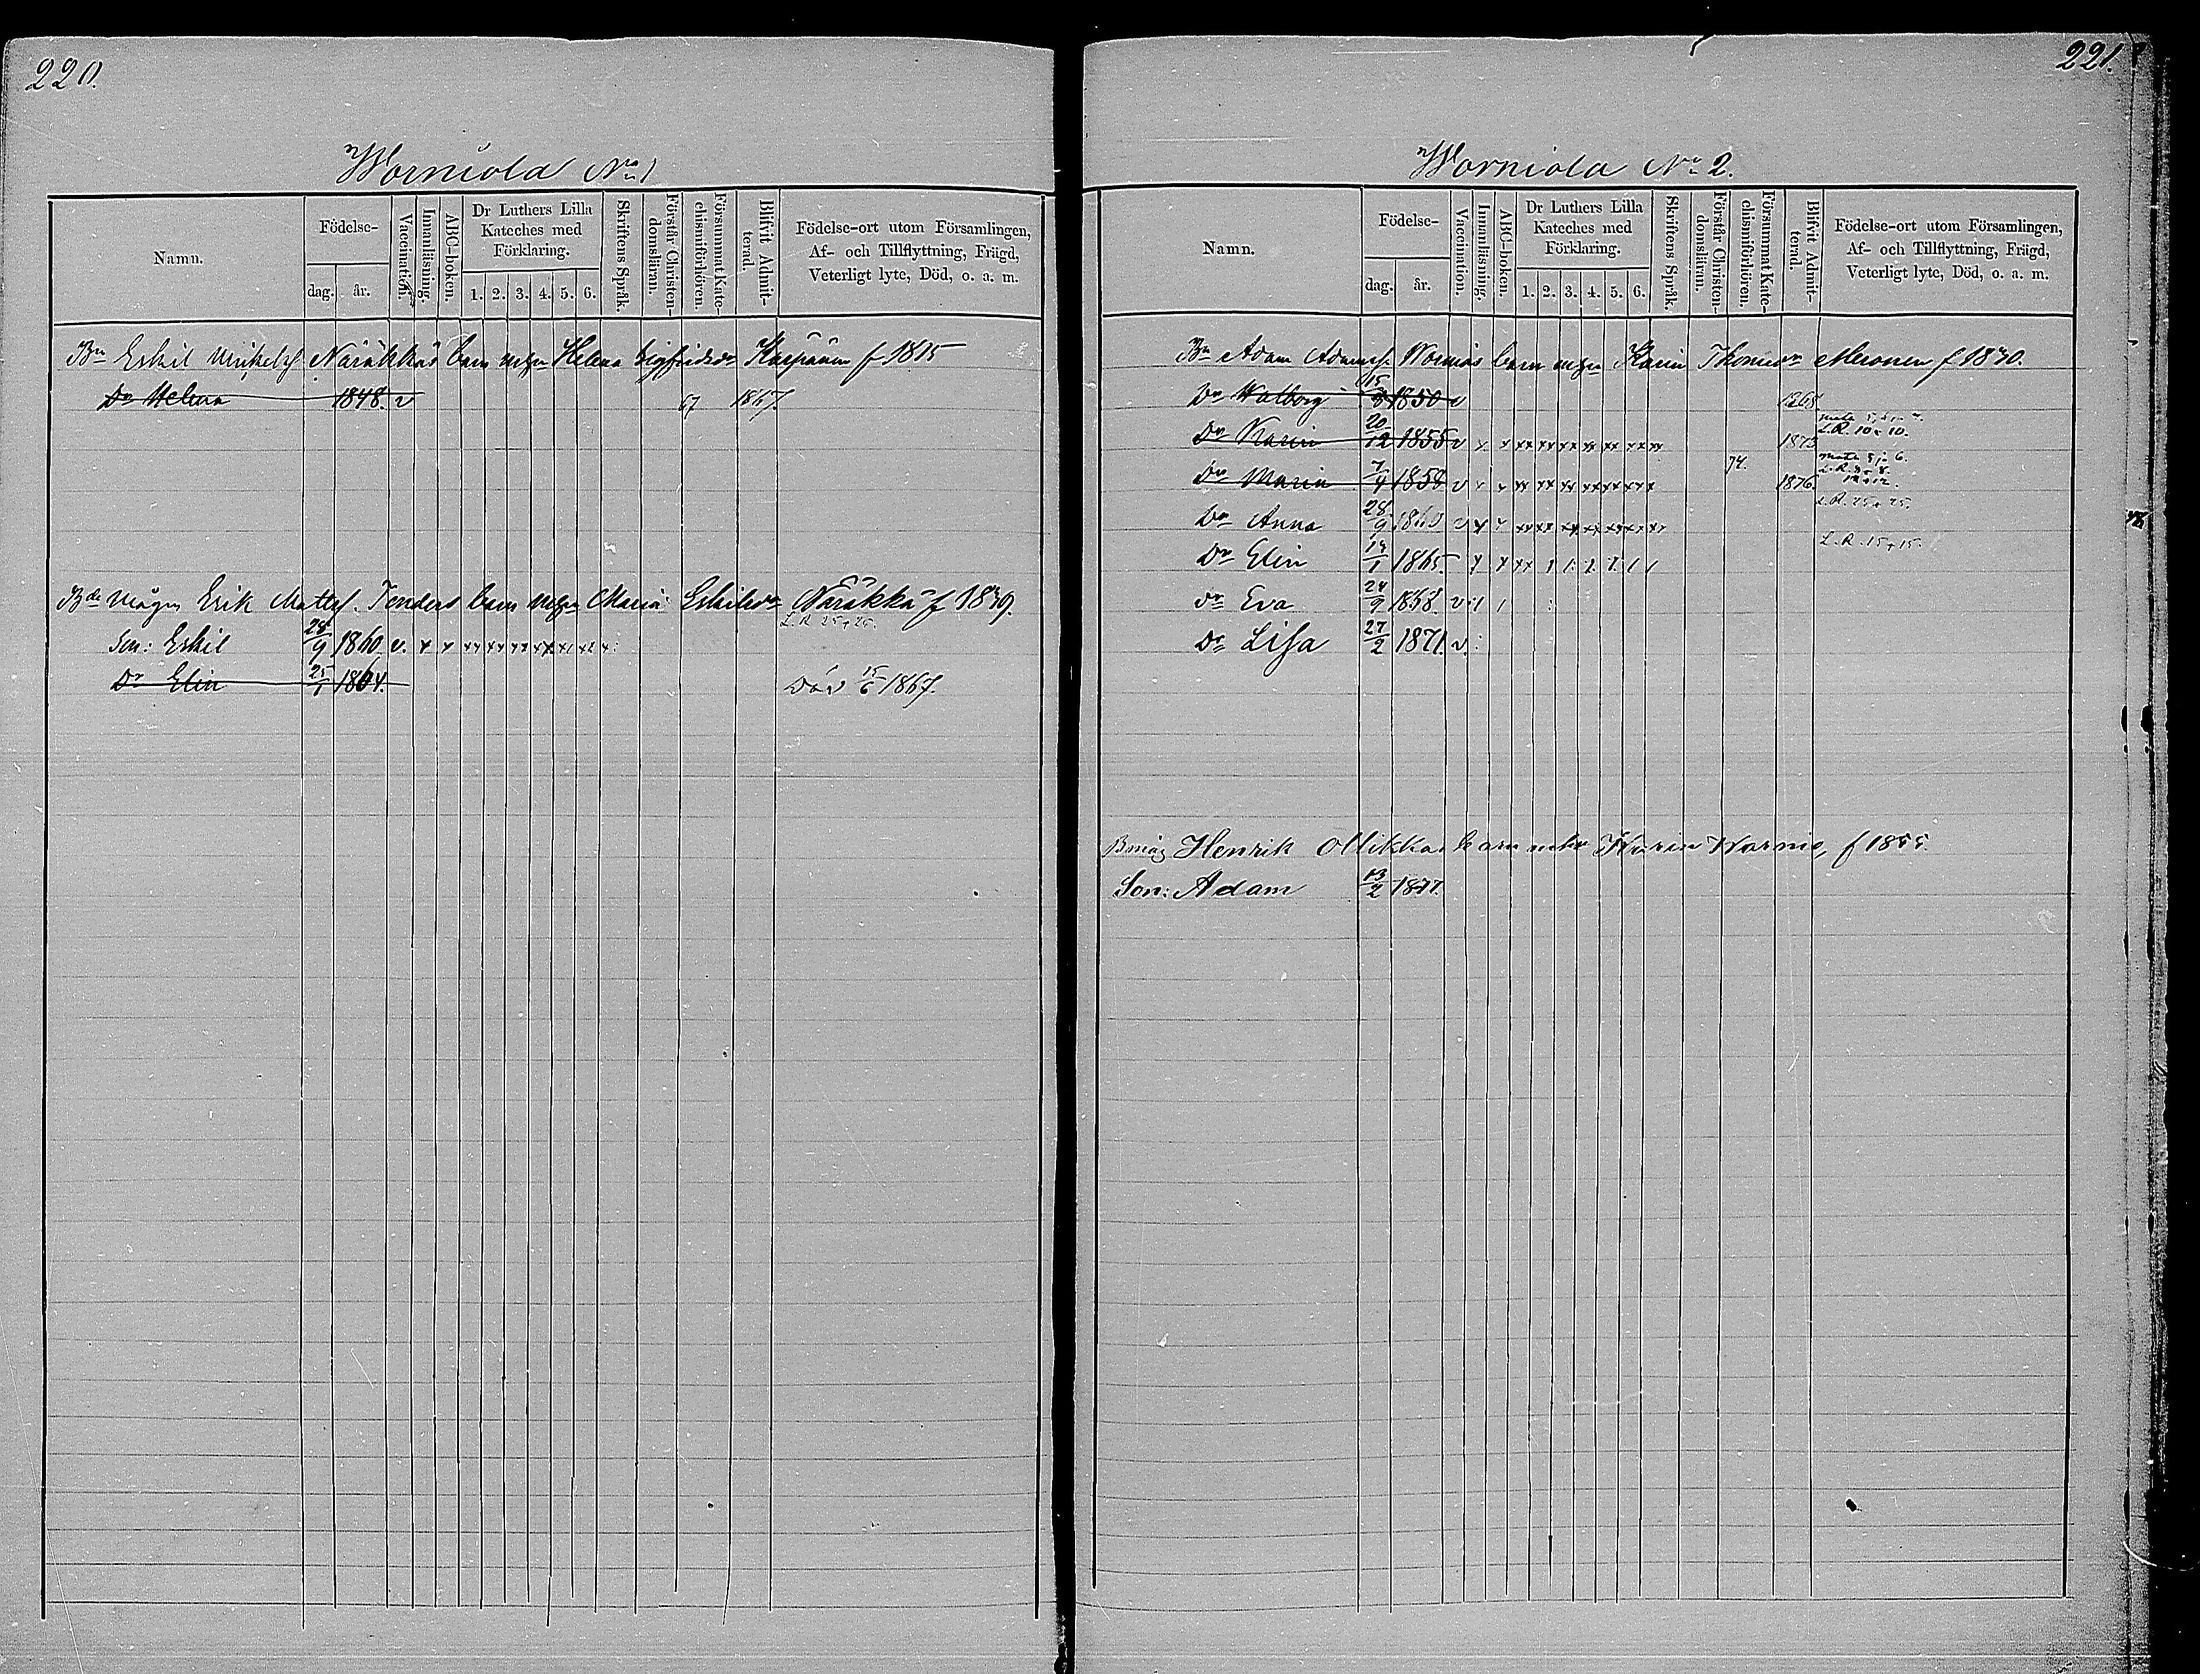 220.
Worniola No 1
Namn.
Födelse-
dag.
år.
Vaccination.
Innanläsning.
ABC-boken.
Dr Luthers Lilla Kateches med Förklaring.
1. 2. 3. 4. 5. 6.
Skriftens Språk.
Förstår Christendomsläran.
Försummat Katechismiförhören.
Blifvit Admitterad.
Födelse-ort utom Församlingen, Af- och Tillflyttning, Frägd, Veterligt lyte, Död, o. a. m.
Bn Eskil Näräkkäs barn m. Helena Sigfridsdr f 1815
Dr Helena 1848. v 67 1867.
Måg Erik Matts. barn m. Maria Eskilsdr Näräkkä f 1839.
L. R. 25+25.
Son: Eskil 28/9 1860 v. x x xx xx xx xx
Dr Elin 25/1 1864. Död 15/6 1867.
221.
Worniola No 2.
Namn.
Födelse-
dag.
år.
Vaccination.
Innanläsning.
ABC-boken.
Dr Luthers Lilla Kateches med Förklaring.
1. 2. 3. 4. 5. 6.
Skriftens Språk.
Förstår Christendomsläran.
Försummat Katechismiförhören.
Blifvit Admitterad.
Födelse-ort utom Församlingen, Af- och Tillflyttning, Frägd, Veterligt lyte, Död, o. a. m.
Bn Adam Adamss. Wornias barn m. Karin Thomasdr Meronen f 1830.
Dr Walborg 1850 v 1868
L. R. 10+10.
Dr Karin 20/12 1855 v x x xx xx xx xx xx xx xx 1873
Dr Maria 7/4 1858 v x x xx xx xx xx xx 74. 1876.
L. R. 25+25.
Dr Anna 28/9 v x x xx xx xx xx xx
L. R. 15+15.
Dr Elin 19/1 1865.
Dr Eva 24/9 1868. v
Dr Lisa 27/2 1871. v.
Bmåg Henrik Ollikka, barn m. Karin Warnia, f 1855.
Son: Adam 13/2 1877.